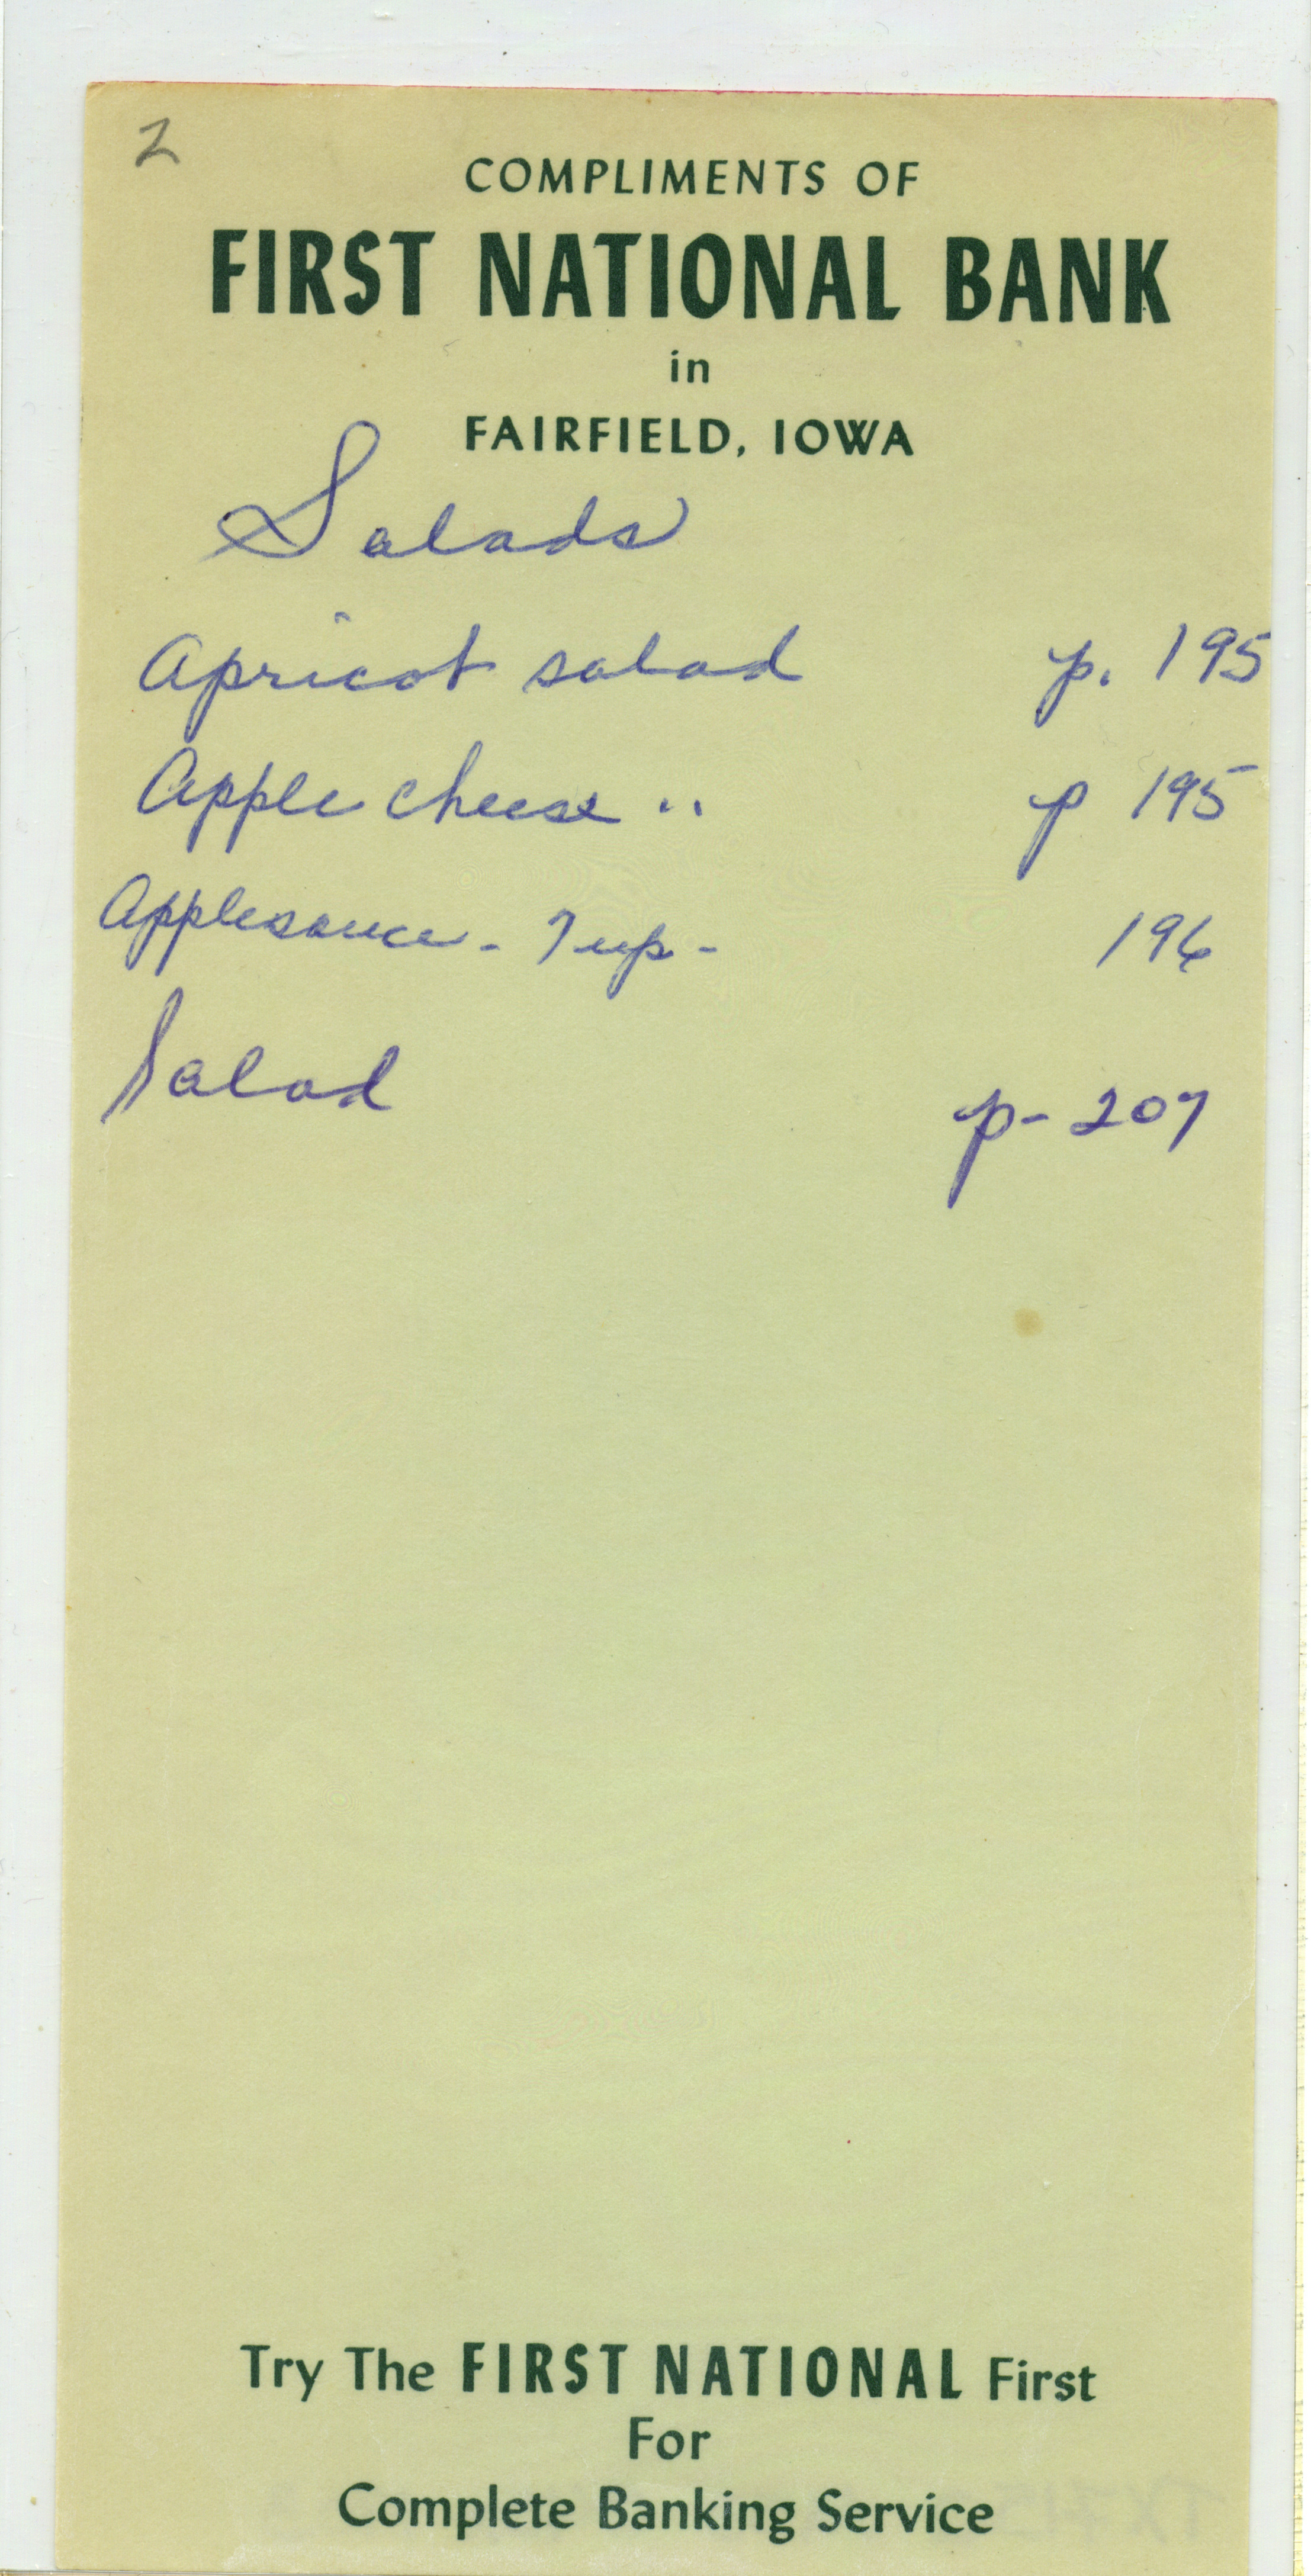 2
COMPLIMENTS OF
FIRST NATIONAL BANK
in
FAIRFIELD, IOWA
Salads
Apricot salad p. 195
Apple cheese " p 195
Applesauce - 7 up - 196
Salad p - 207
Try The FIRST NATIONAL First
For
Complete Banking Service